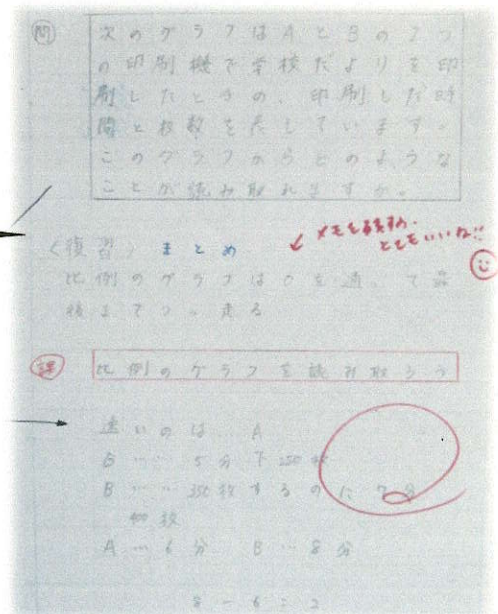 問
次のグラフはAとBの2つ
の印刷機で学校だよりを印
刷したときの、印刷した時
間と枚数を表しています。
このグラフからどのような
ことが読み取れますか。
〈復習〉まとめ
とてもいいね!!
比例のグラフは0を通って最
後までつっ走る
課
比例のグラフを読み取ろう
速いのは…A
B……5分で250枚
B……350枚するのに7分
400枚
A…6分 B…8分
8-6=2